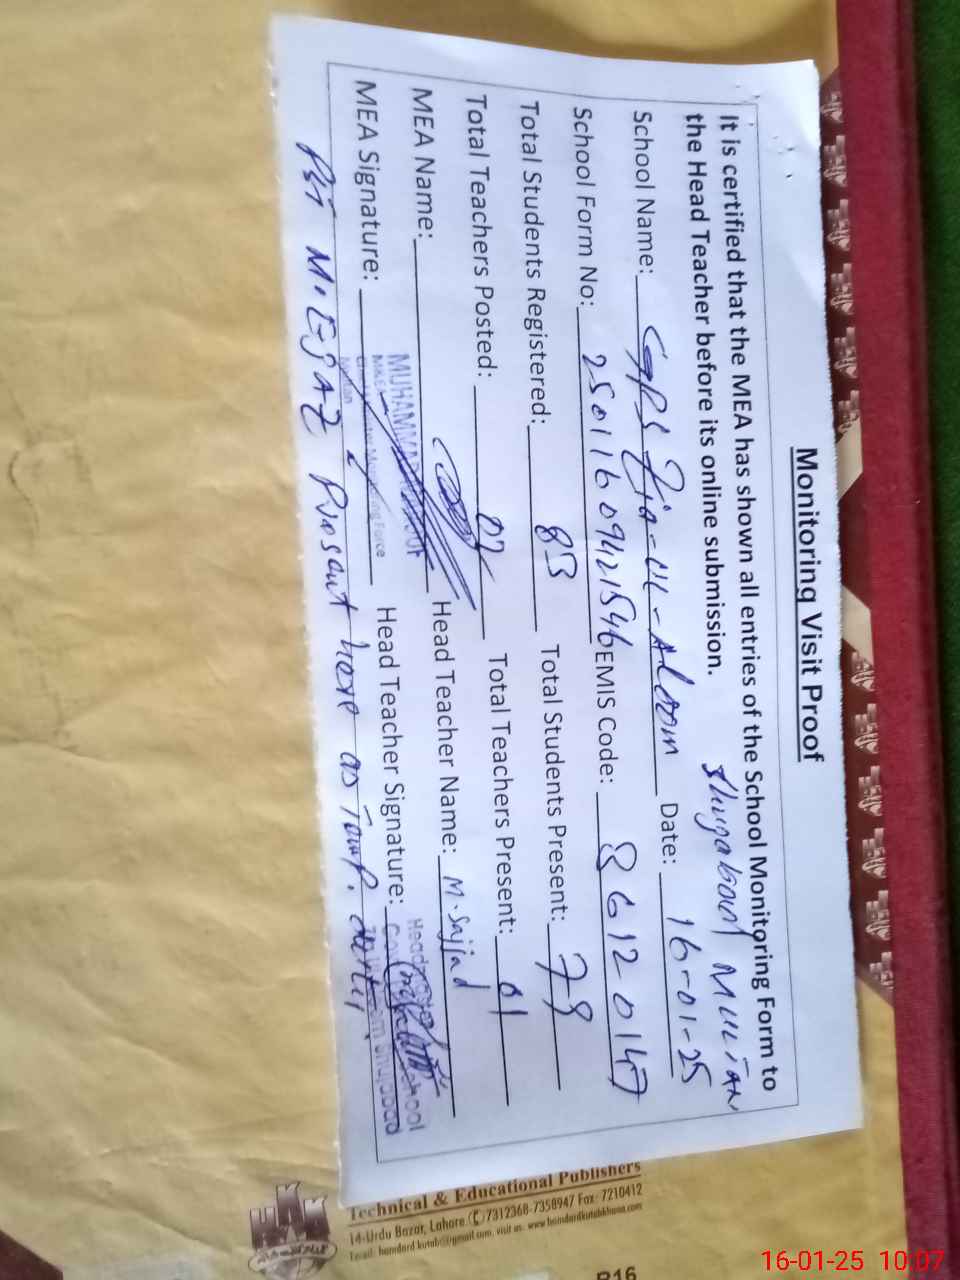 Monitoring Visit Proof
It is certified that the MEA has shown all entries of the School Monitoring Form to
the Head Teacher before its online submission. Shujabad Multan
School Name: GPS Zia-Ul-Aloom Date: 16-01-25
School Form No: 25011609421546 EMIS Code: 8612 0147
Total Students Registered: 83 Total Students Present: 78
Total Teachers Posted: 02 Total Teachers Present: 01
MEA Name: Head Teacher Name: M. Sajjad
MEA Signature: Head Teacher Signature:
MUHAMMAD
PST M. EJAZ Present here as Temp. duty
Technical & Educational Publishers
14-Urdu Bazar, Lahore. 7312368-7358947 Fax: 7210412
Email: hamdard kutab@gmail.com, visit us: www.hamdardkutabkhana.com
16-01-25 10:07